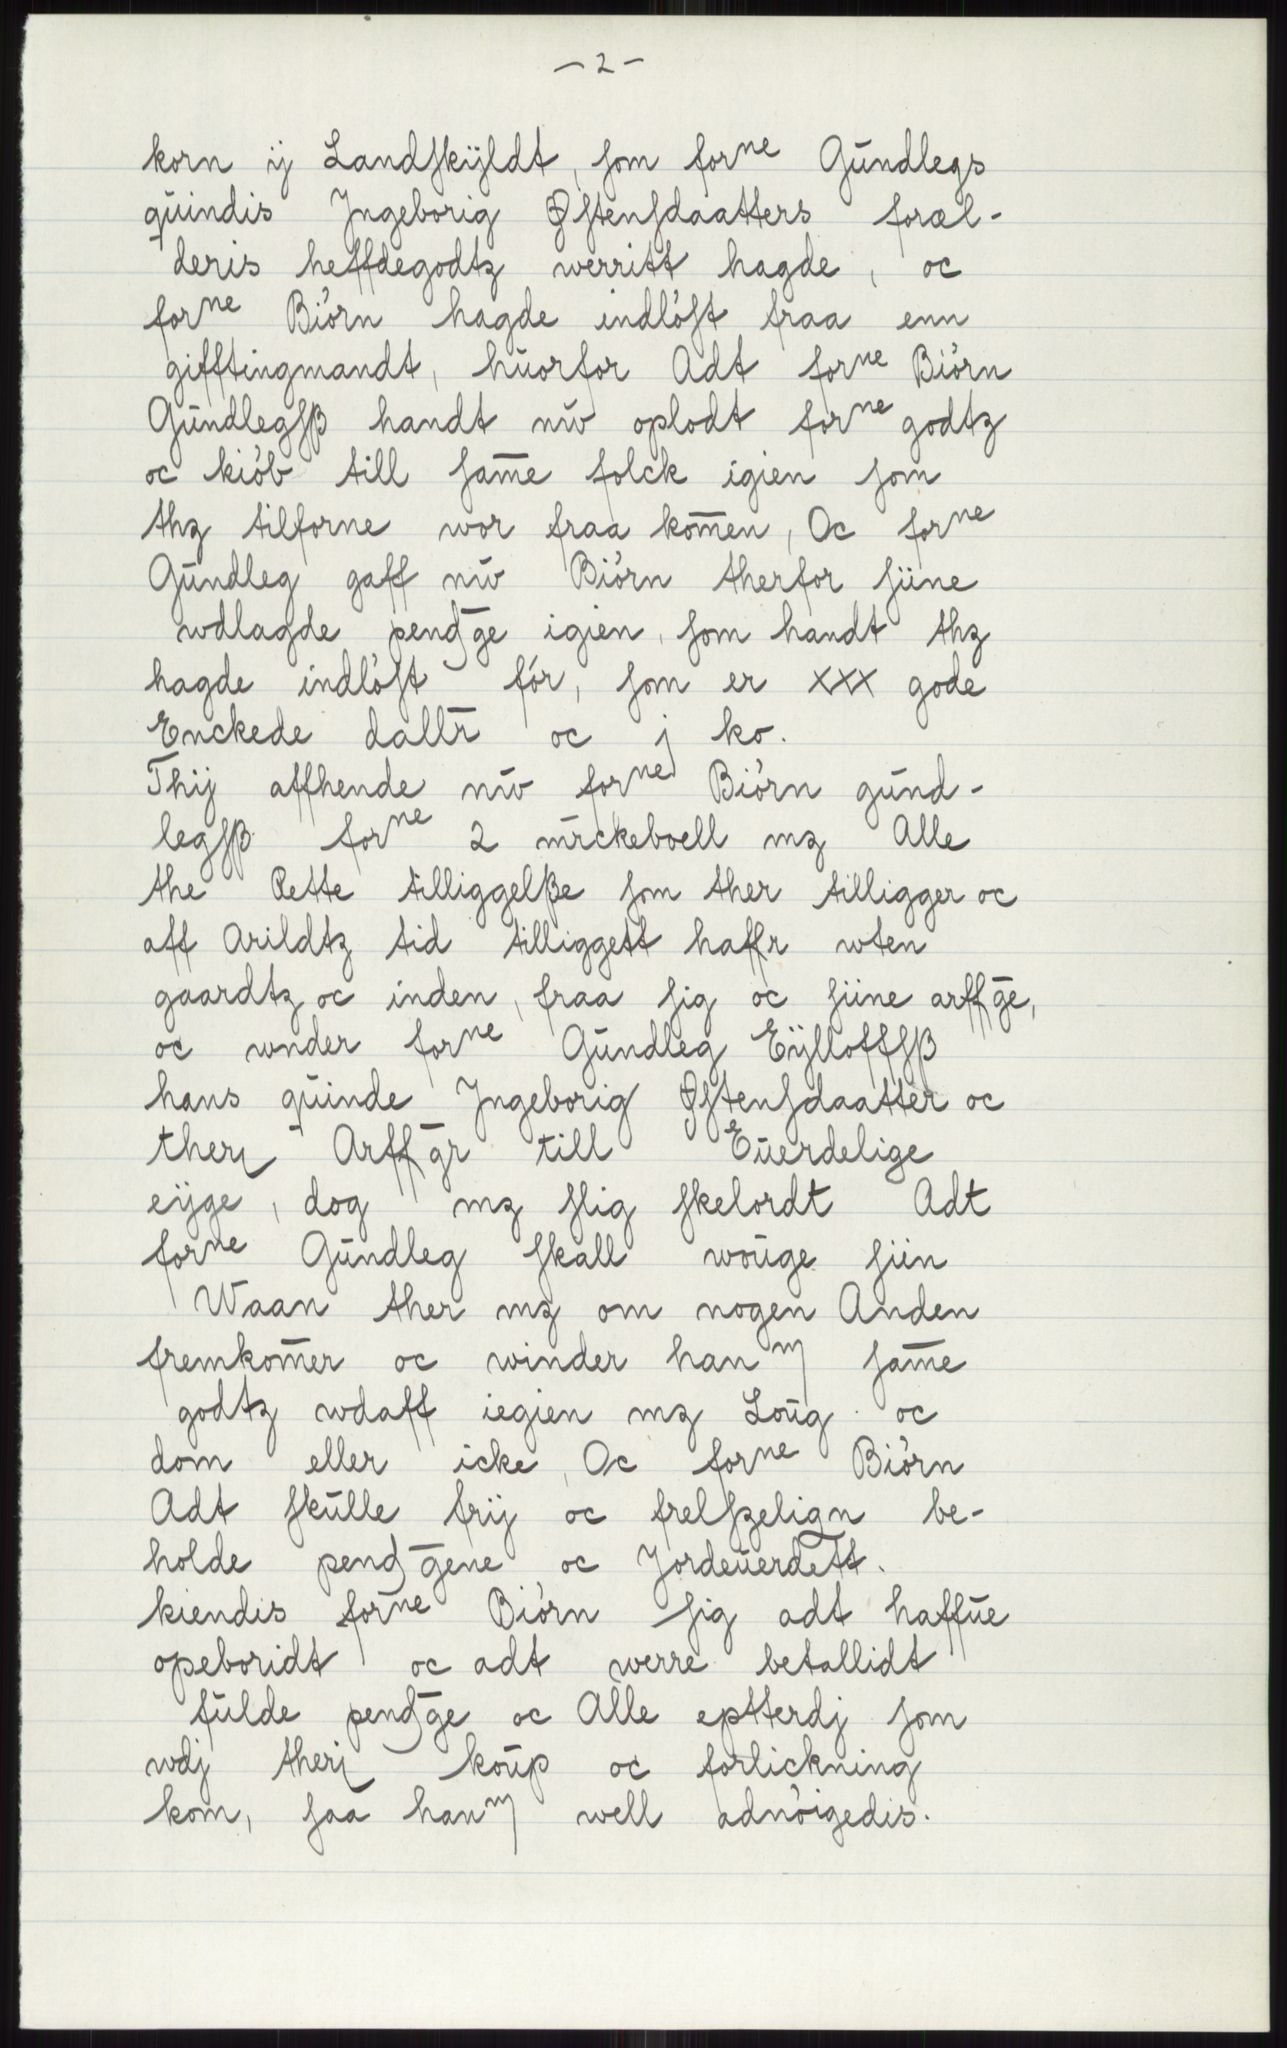 - 2 -
korn ij Landskÿldt, som forne Gūndlegs
qūindis Jngeborig Østensdaatters foræl-
deris heffdegodtz werritt hagde, oc
forne Biórn hagde indlóst fraa enn
gifftingmandt, hūorfor Adt forne Biórn
Gūndlegsß handt nūw oplodt forne godtz
oc kiób till same folck igien som
thz tilforne wor fraa komen, Oc forne
Gūndleg gaff nūw Biórn therfor siine
wdlagde pendge igien, som handt thz
hagde indlóst fór, som er xxx gode
Enckede dallr oc j ko.
Thij affhende nūw forne Biórn gūnd-
legsß forne 2 mrckeboell mz Alle
the Rette tilliggelße som ther tilligger oc
aff Arildtz tid tilliggett haffr wten
gaardtz oc inden, fraa sig oc siine arffge,
oc wnder forne Gūndleg Eÿlloffsß
hans qūinde Jngeborig Østensdaatter oc
ther Arffgr till Eūerdelige
eÿge, dog mz slig skelordt Adt
forne Gūndleg skall woūge siin
Waan ther mz om nogen Anden
fremkomer oc winder hanm same
godtz wdaff iegien mz Loūg oc
dom eller icke, Oc forne Biórn
Adt skūlle frij oc frelszelign be-
holde pendgene oc Jordeūerdett.
kiendis forne Biórn sig adt haffūe
opeboridt oc adt werre betallidt
fūlde pendge oc Alle eptterdj som
wdj theri koūp oc forlickning
kom, saa hanm well adnóigedis.